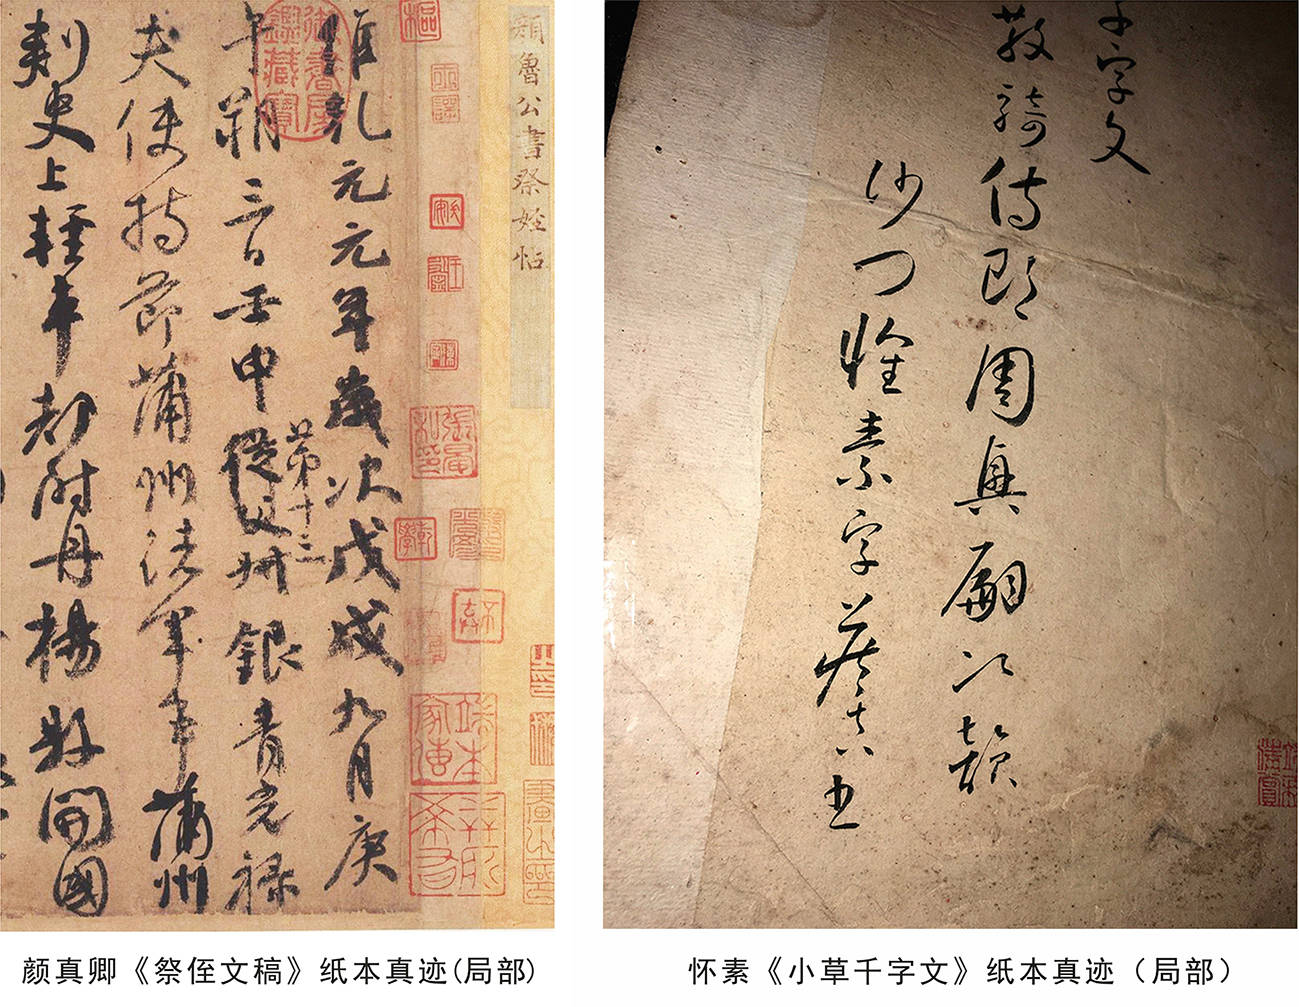 顏魯公書祭姪帖
維乾元元年歲次戊戌九月庚
午朔三日壬申
第十三
從父叔銀青光祿
夫使持節蒲州諸軍事蒲州
刺史上輕車都尉丹楊縣開國
御書房鑑藏寶
颜真卿《祭侄文稿》纸本真迹(局部)
千字文
散騎侍郎周興嗣次韻
沙門懷素字藏真書
怀素《小草千字文》纸本真迹（局部）